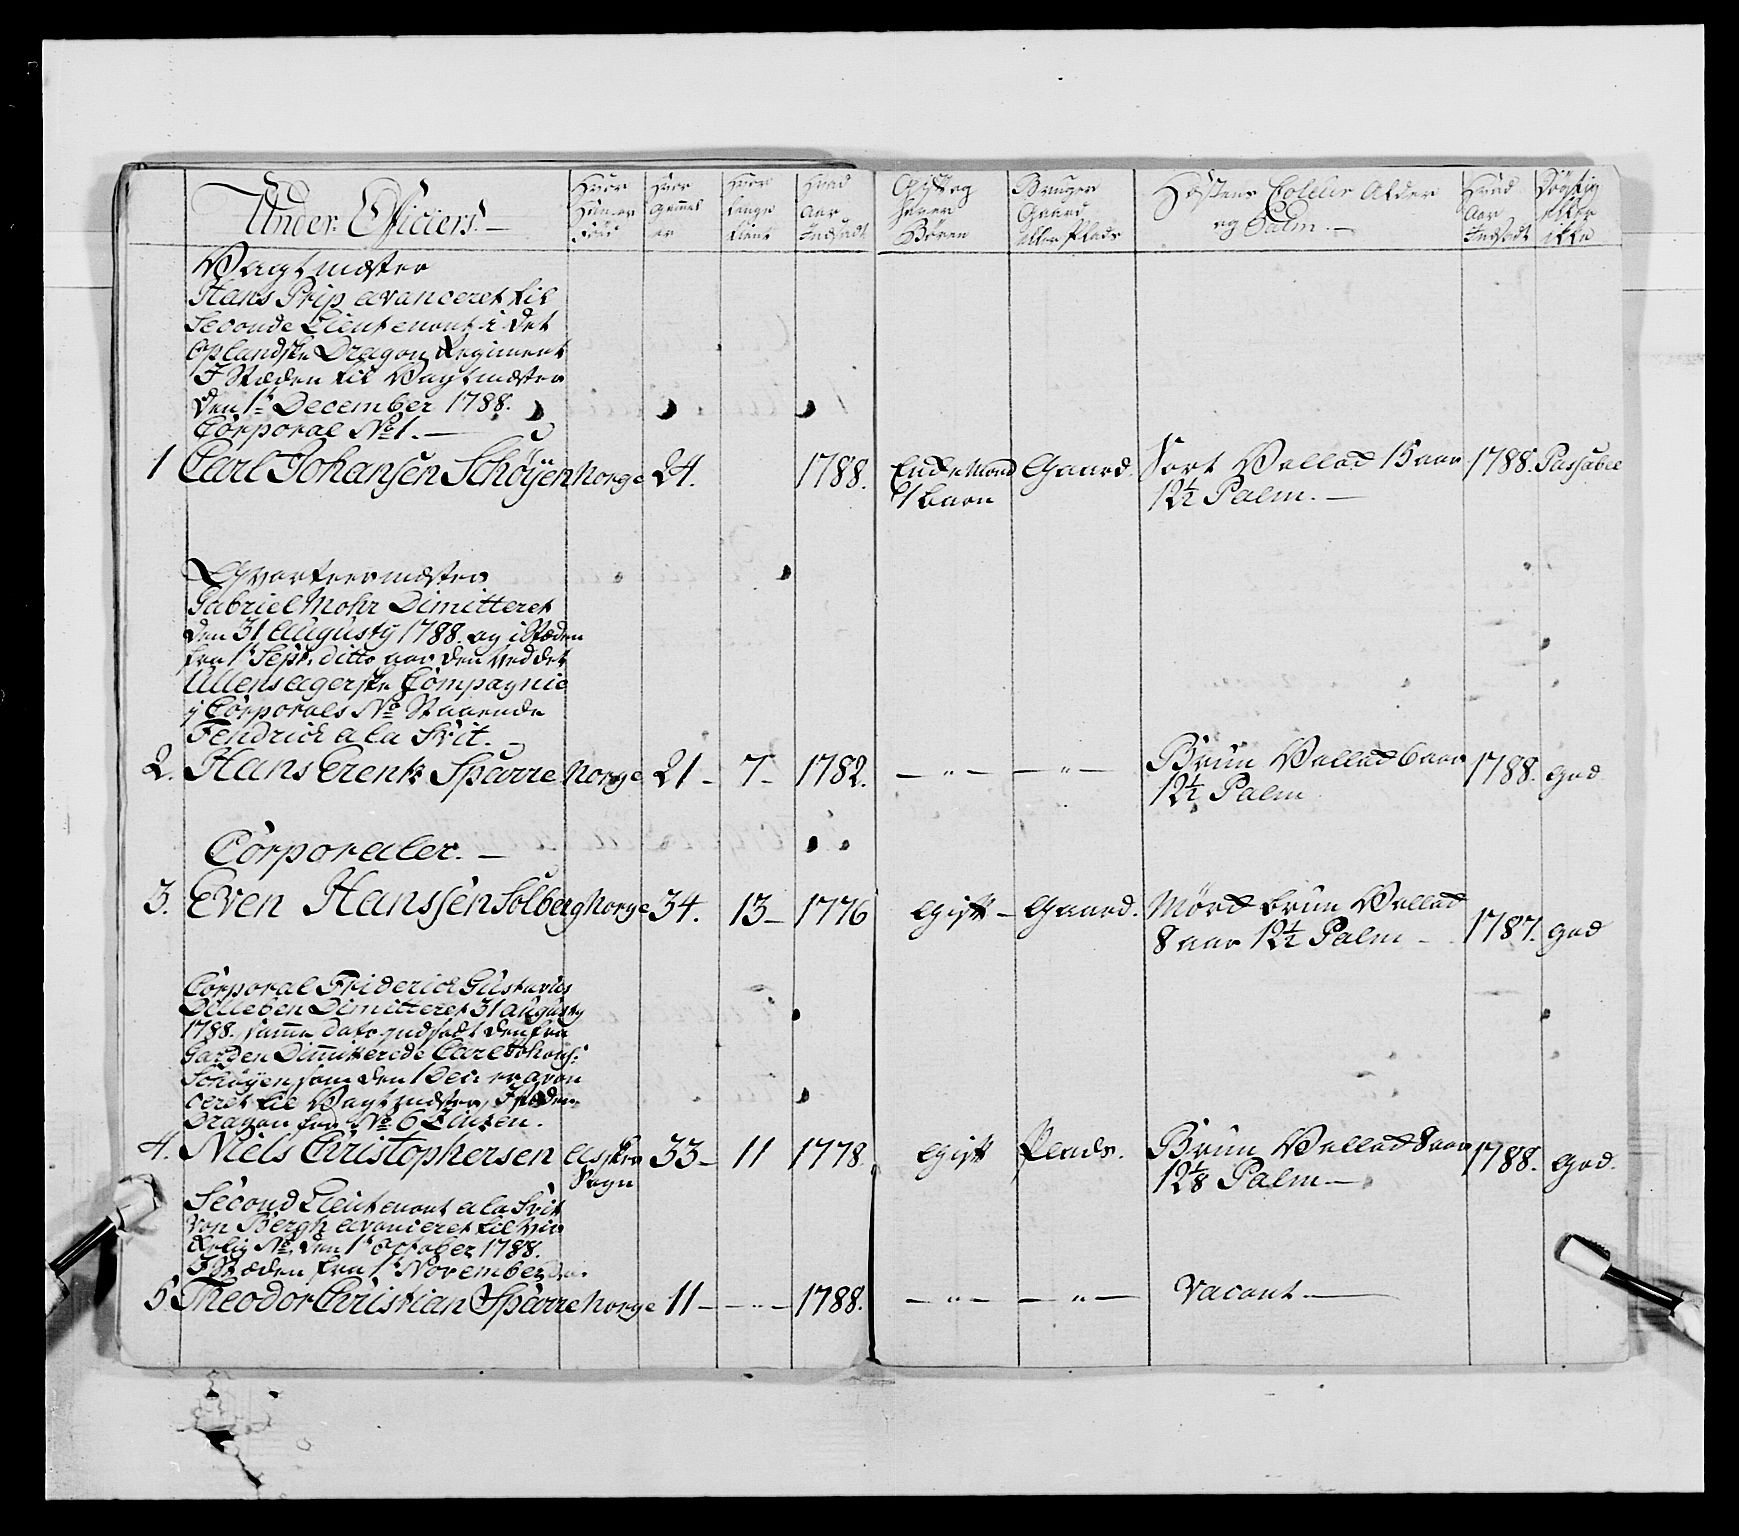 Under Officiers.
Hvor
Hand er
Fød
Hvor
gammel
er
Hvor
længe
tient
Hvad
Aar
Indsadt
Gift og
haver
Børen
Bruger
Gaard
eller Plads
Hæstens Coleur Alder
og Palm.
Hvad
Aar
Indsadt
Dögtig
eller
ikke
Vagtmester
Hans Prip avanceret til
Seconde Lieutenant i det
Oplandske Dragon Regiment
I Stæden til Vagtmester
den 1te December 1788.
Corporal No 1.
1 Carl Johansen Schøyen Norge 24. 1788. Enke Mand Gaard. Sort Vallak 15 aar 1788. Passabel
1 barn 12½ Palm.
Qvarteermester
Gabriel Mohr Dimitteret
den 31 Augusty 1788. og i Stæden
fra 1te Sept. ditto aar den ved det
Ullensagerske Compagnie
j Corporals No Staaende
Fendrich a la Svit.
2. Hans Grenk Sparre Norge 21 - 7 - 1782. - " - - " - Brun Vallak 6 aar 1788. god
12½ Palm
Corporaler.
3. Even Hanssen Solberg Norge 34. 13 - 1776 Gift - Gaard. Mörck brun Vallak
8 aar 12½ Palm - 1787. god
Corporal Friderich Gustavus
Dilleben Dimitteret 31 Augusty
1788. samme dato indsadt den fra
Garden Dimitterede Carl Johans:
Schøyen som den 1 Dec: er avan
ceret til Vagtmester, I Stæden
Dragon fra No 6
4. Niels Christophersen Asker 33 - 11 1778. Gift Plads. Brun Vallak 8 aar 1788. god.
Sogn 12⅛ Palm
Second Lieutenant a la Svit
von Bergh avanceret til vir
kelig No. den 1te October 1788.
I Stæden fra 1te November
5 Theodor Christian Sparre Norge 11 - - " - 1788. - " - - " - Vacant.